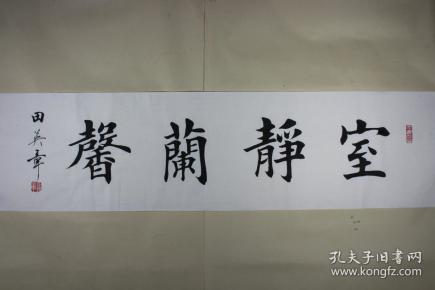 室靜蘭馨
田英章
孔夫子旧书网
www.kongfz.com